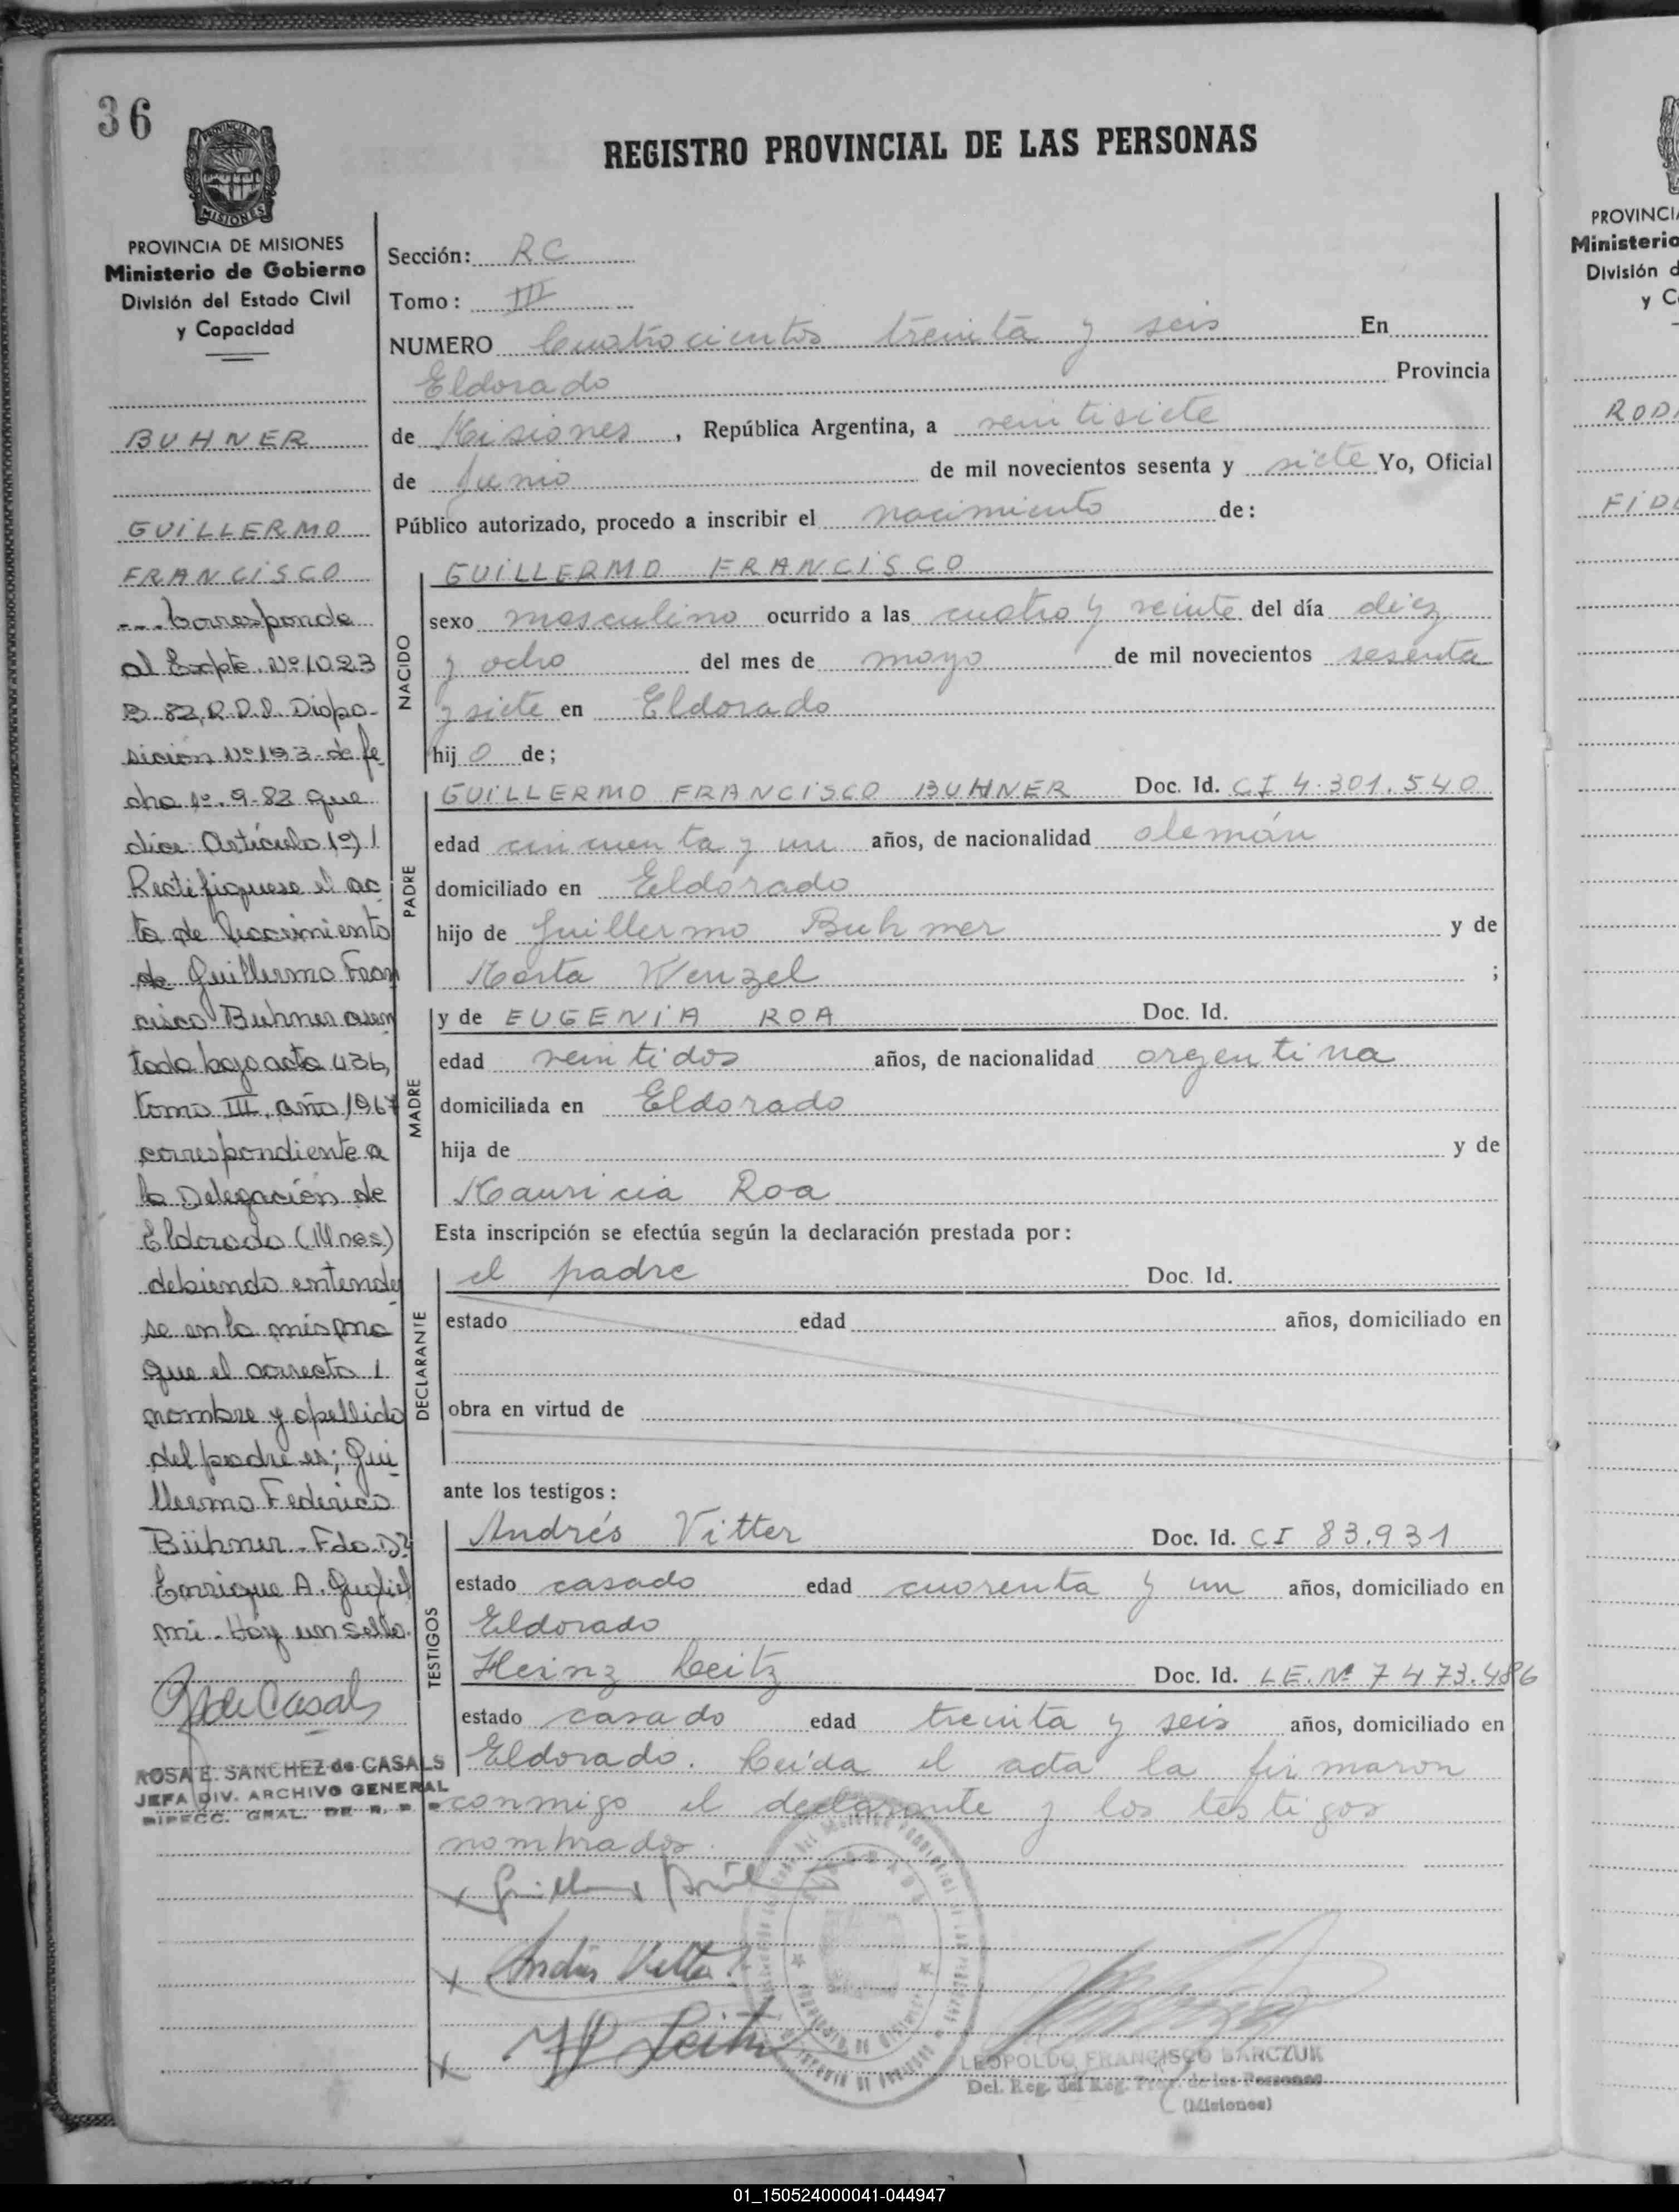 36
REGISTRO PROVINCIAL DE LAS PERSONAS
PROVINCIA DE MISIONES
MISIONES
PROVINCIA DE MISIONES
Ministerio de Gobierno
División del Estado Civil
y Capacidad
BUHNER
GUILLERMO
FRANCISCO
---Corresponde
al Expte. Nº 1023
B-82, R.P.P. Dispo-
sición Nº 193 de fe
cha 1º-9-82 que
dice: Artículo 1º) 1
Rectifíquese el ac
ta de Nacimiento
de Guillermo Fran
cisco Buhner asen
tada bajo acta 436,
tomo III, año 1967
correspondiente a
la Delegación de
Eldorado (Mnes)
debiendo entender
se en la misma
que el correcto 1
nombre y apellido
del padre es; Gui
llermo Federico
Bühner - Fdo. Dr
Enrique A. Gudiel
mi - Hay un sello.
R de Casals
ROSA E. SANCHEZ de CASALS
JEFA DIV. ARCHIVO GENERAL
DIRECC. GRAL. DE R. P. P.
Sección: RC
Tomo: III
NUMERO Cuatrocientos treinta y seis En
Eldorado Provincia
de Misiones, República Argentina, a veintisiete
de Junio de mil novecientos sesenta y siete Yo, Oficial
Público autorizado, procedo a inscribir el nacimiento de:
NACIDO
GUILLERMO FRANCISCO
sexo masculino ocurrido a las cuatro y veinte del día diez
y ocho del mes de mayo de mil novecientos sesenta
y siete en Eldorado
hijo de;
PADRE
GUILLERMO FRANCISCO BUHNER Doc. Id. CI 4.301.540
edad cincuenta y un años, de nacionalidad alemán
domiciliado en Eldorado
hijo de Guillermo Buhner y de
Marta Wenzel ;
MADRE
y de EUGENIA ROA Doc. Id.
edad veintidos años, de nacionalidad argentina
domiciliada en Eldorado
hija de y de
Mauricia Roa
Esta inscripción se efectúa según la declaración prestada por:
DECLARANTE
el padre Doc. Id.
estado edad años, domiciliado en
obra en virtud de
ante los testigos:
TESTIGOS
Andrés Vitter Doc. Id. CI 83.931
estado casado edad cuarenta y un años, domiciliado en
Eldorado
Heinz Leitz Doc. Id. LE. Nº 7473.486
estado casado edad treinta y seis años, domiciliado en
Eldorado. Leída el acta la firmaron
conmigo el declarante y los testigos
nombrados.
LEOPOLDO FRANCISCO BARCZUK
Del. Reg. del Reg. Prov. de las Personas
(Misiones)
PROVINCIA
Ministerio
División d
y C
ROD
FID
01_150524000041-044947